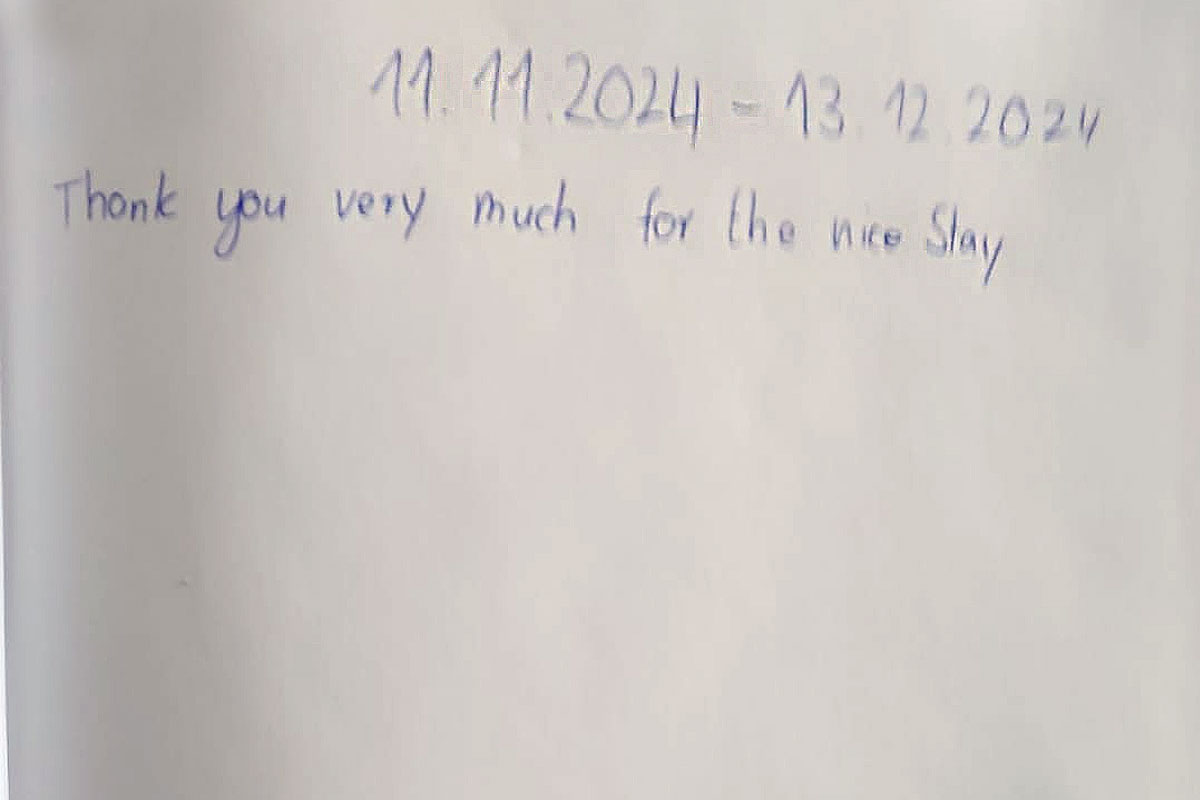 11.11.2024 - 13.12.2024
Thank you very much for the nice Stay